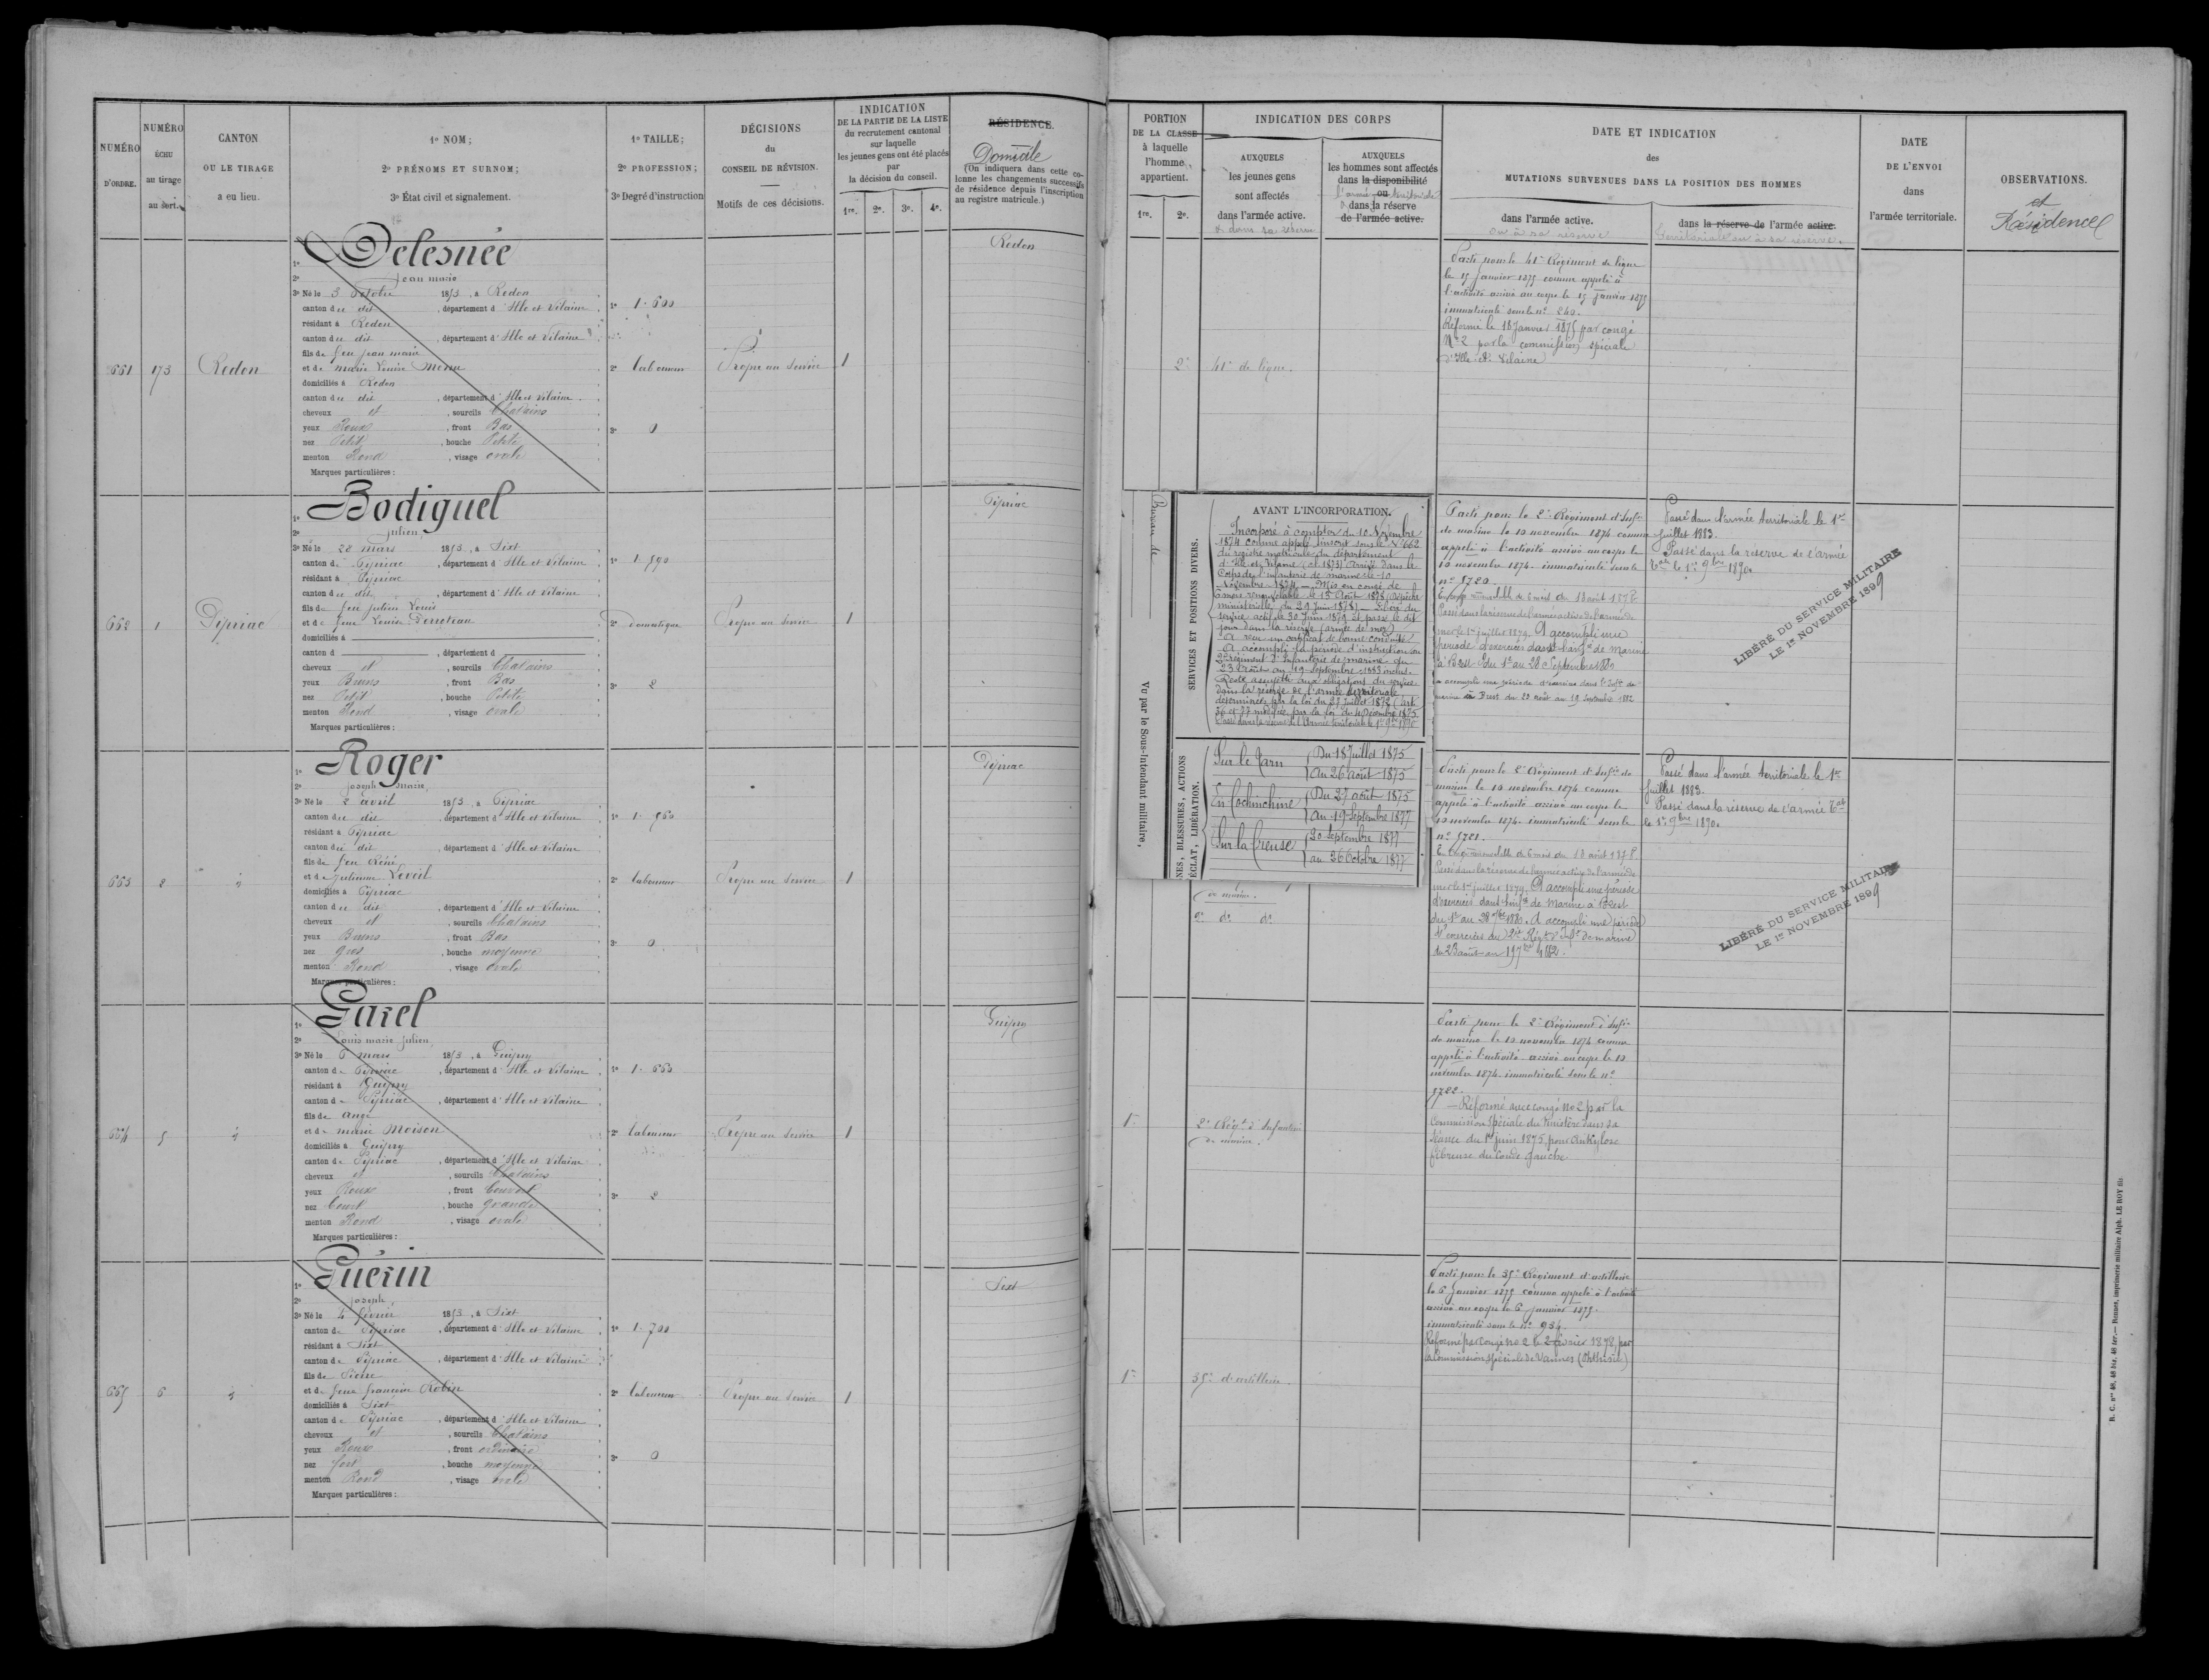 NUMÉRO
D'ORDRE.
NUMÉRO
ÉCHU
au tirage
au sort.
CANTON
OU LE TIRAGE
a eu lieu.
1º NOM;
2º PRÉNOMS ET SURNOM;
3º État civil et signalement.
1º TAILLE;
2º PROFESSION;
3º Degré d'instruction
DÉCISIONS
du
CONSEIL DE RÉVISION.
Motifs de ces décisions.
INDICATION
DE LA PARTIE DE LA LISTE
du recrutement cantonal
sur laquelle
les jeunes gens ont été placés
par
la décision du conseil.
1re. 2e. 3e. 4e.
RÉSIDENCE.
Domicile
(On indiquera dans cette colonne les changements successifs
de résidence depuis l'inscription
au registre matricule.)
661
173
Redon
1º Delesnée
2º Jean marie
3º Né le 3 Octobre 1853, à Redon
canton du dit, département d'Ille et Vilaine
résidant à Redon
canton du dit, département d'Ille et Vilaine
fils de feu jean marie
et de marie Louise Menu
domiciliés à Redon
canton du dit, département d'Ille et Vilaine
cheveux et, sourcils Chatains
yeux Roux, front Bas
nez Petit, bouche Petite
menton Rond, visage ovale
Marques particulières:
1º 1.600
2º laboureur
3º 0
Propre au service
1
Redon
662
1
Pipriac
1º Bodiguel
2º Julien
3º Né le 28 mars 1853, à Sixt
canton de Pipriac, département d'Ille et Vilaine
résidant à Pipriac
canton du dit, département d'Ille et Vilaine
fils de feu Julien Louis
et de feue Louise Perroteau
domiciliés à
canton d, département d
cheveux et, sourcils Chatains
yeux Bruns, front Bas
nez Petit, bouche Petite
menton Rond, visage ovale
Marques particulières:
1º 1.590
2º Domestique
3º 2
Propre au service
1
Pipriac
663
2
d
1º Roger
2º Joseph Marie
3º Né le 2 avril 1853, à Pipriac
canton du dit, département d'Ille et Vilaine
résidant à Pipriac
canton du dit, département d'Ille et Vilaine
fils de feu Réné
et de julienne Leveil
domiciliés à Pipriac
canton du dit, département d'Ille et Vilaine
cheveux et, sourcils Chatains
yeux Bruns, front Bas
nez gros, bouche moyenne
menton Rond, visage ovale
Marques particulières:
2º laboureur
3º 0
Propre au service
1
Pipriac
664
5
d
1º Garel
2º Louis marie Julien
3º Né le 6 mars 1853, à Guipry
canton de Pipriac, département d'Ille et Vilaine
résidant à Guipry
canton de Pipriac, département d'Ille et Vilaine
fils de Ange
et de marie Moison
domiciliés à Guipry
canton de Pipriac, département d'Ille et Vilaine
cheveux et, sourcils Chatains
yeux Roux, front Couvert
nez Court, bouche grande
menton Rond, visage ovale
Marques particulières:
2º laboureur
3º 2
Propre au service
1
Guipry
665
6
d
1º Guérin
2º Joseph
3º Né le 4 février 1853, à Sixt
canton de Pipriac, département d'Ille et Vilaine
résidant à Sixt
canton de Pipriac, département d'Ille et Vilaine
fils de Pierre
et de feue francoise Robin
domiciliés à Sixt
canton de Pipriac, département d'Ille et Vilaine
cheveux et, sourcils Chatains
yeux Roux, front ordinaire
nez fort, bouche moyenne
menton Rond, visage ovale
Marques particulières:
1º 1.700
2º laboureur
3º 0
Propre au service
1
Sixt
PORTION
DE LA CLASSE
à laquelle
l'homme
appartient.
1re. 2e.
INDICATION DES CORPS
AUXQUELS
les jeunes gens
sont affectés
dans l'armée active.
& dans sa réserve
AUXQUELS
les hommes sont affectés
dans la disponibilité
l'armée ou territoriale
& dans la réserve
de l'armée active.
DATE ET INDICATION
des
MUTATIONS SURVENUES DANS LA POSITION DES HOMMES
dans l'armée active.
ou à sa réserve
dans la réserve de l'armée active.
territoriale ou à sa réserve.
DATE
DE L'ENVOI
dans
l'armée territoriale.
OBSERVATIONS.
et
Résidence
2e
41e de ligne.
Parti pour le 41e Régiment de ligne
le 15 janvier 1875 comme appelé à
l'activité arrivé au corps le 15 janvier 1875
immatriculé sous le nº 240.
Réformé le 18 Janvier 1875 par congé
Nº 2 par la commission spéciale
d'Ille et Vilaine
Bureau de
Vu par le Sous-Intendant militaire,
SERVICES ET POSITIONS DIVERS.
AVANT L'INCORPORATION.
Incorporé à compter du 10 Novembre
1874 comme appelé inscrit sous le Nº 662
du registre matricule du département
d'Ille et Vilaine (cl 1873) Arrivé dans le
Corps de l'infanterie de marine le 10
Novembre 1874 — Mis en congé de
6 mois renouvelable le 15 Août 1878 (dépêche
ministérielle du 29 Juin 1878) — Libéré du
service actif le 30 Juin 1879 et passé le dit
jour dans la réserve (armée de mer)
A reçu un certificat de bonne conduite
A accompli la période d'instruction au
2e Régiment d'Infanterie de marine du
23 Août au 19 Septembre 1883 inclus.
Reste assujetti aux obligations du service
dans la réserve de l'armée territoriale
déterminées par la loi du 27 Juillet 1872 (art
36 et 77 modifiés par la loi du 4 Décembre 1875
Passé dans la réserve de l'Armée territoriale le 1er 9bre 1890
NES, BLESSURES, ACTIONS
ÉCLAT, LIBÉRATION.
Sur le Tarn Du 18 Juillet 1875
au 26 août 1875
En Cochinchine Du 27 août 1875
au 19 Septembre 1877
Sur la Creuse 20 Septembre 1877
au 26 Octobre 1877
Parti pour le 2e Régiment d'Infie
de marine le 10 novembre 1874 comme
appelé à l'activité arrivé au corps le
10 novembre 1874. immatriculé sous le
nº 5720.
En congé renouvelable de 6 mois du 13 août 1878.
Passé dans la réserve de l'armée active de l'armée de
mer le 1er juillet 1879. A accompli une
période d'exercices dans l'Infie de marine
à Brest du 1er au 28 Septembre 1880
a accompli une période d'exercices dans l'Infie de
marine à Brest du 23 août au 19 Septembre 1882
Passé dans l'armée territoriale le 1er
Juillet 1883.
Passé dans la réserve de l'armée
tale le 1er 9bre 1890.
LIBÉRÉ DU SERVICE MILITAIRE
LE 1er NOVEMBRE 1899
de marine.
2e dº dº
Parti pour le 2e Régiment d'Infie de
marine le 10 novembre 1874 comme
appelé à l'activité arrivé au corps le
10 novembre 1874. immatriculé sous le
nº 5721.
En congé renouvelable de 6 mois du 13 août 1878.
Passé dans la réserve de l'armée active de l'armée de
mer le 1er juillet 1879. A accompli une période
d'exercices dans l'Infie de Marine à Brest
du 1er au 28 7bre 1880. A accompli une période
d'exercices au 2e Régt d'Infie de marine
du 23 août au 19 7bre 1882.
Passé dans l'armée territoriale le 1er
Juillet 1883.
Passé dans la réserve de l'armée tale
le 1er 9bre 1890.
LIBÉRÉ DU SERVICE MILITAIRE
LE 1er NOVEMBRE 1899
1e
2e Régt d'Infanterie
de marine.
Parti pour le 2e Régiment d'Infie
de marine le 10 novembre 1874 comme
appelé à l'activité arrivé au corps le 10
novembre 1874. immatriculé sous le nº
5722.
— Réformé avec congé nº 2 par la
Commission Spéciale du Finistère dans sa
séance du 1er juin 1875, pour Ankylose
fibreuse du coude gauche
1e
35e d'artillerie.
Parti pour le 35e Régiment d'artillerie
le 6 Janvier 1875 comme appelé à l'activité
arrivé au corps le 6 janvier 1875.
immatriculé sous le nº 934.
Réformé par congé nº 2 le 2 février 1878 par
la Commission spéciale de Vannes (Phthisie)
R. C. nos 46, 46 bis, 46 ter. — Rennes, imprimerie militaire Alph. LE ROY fils